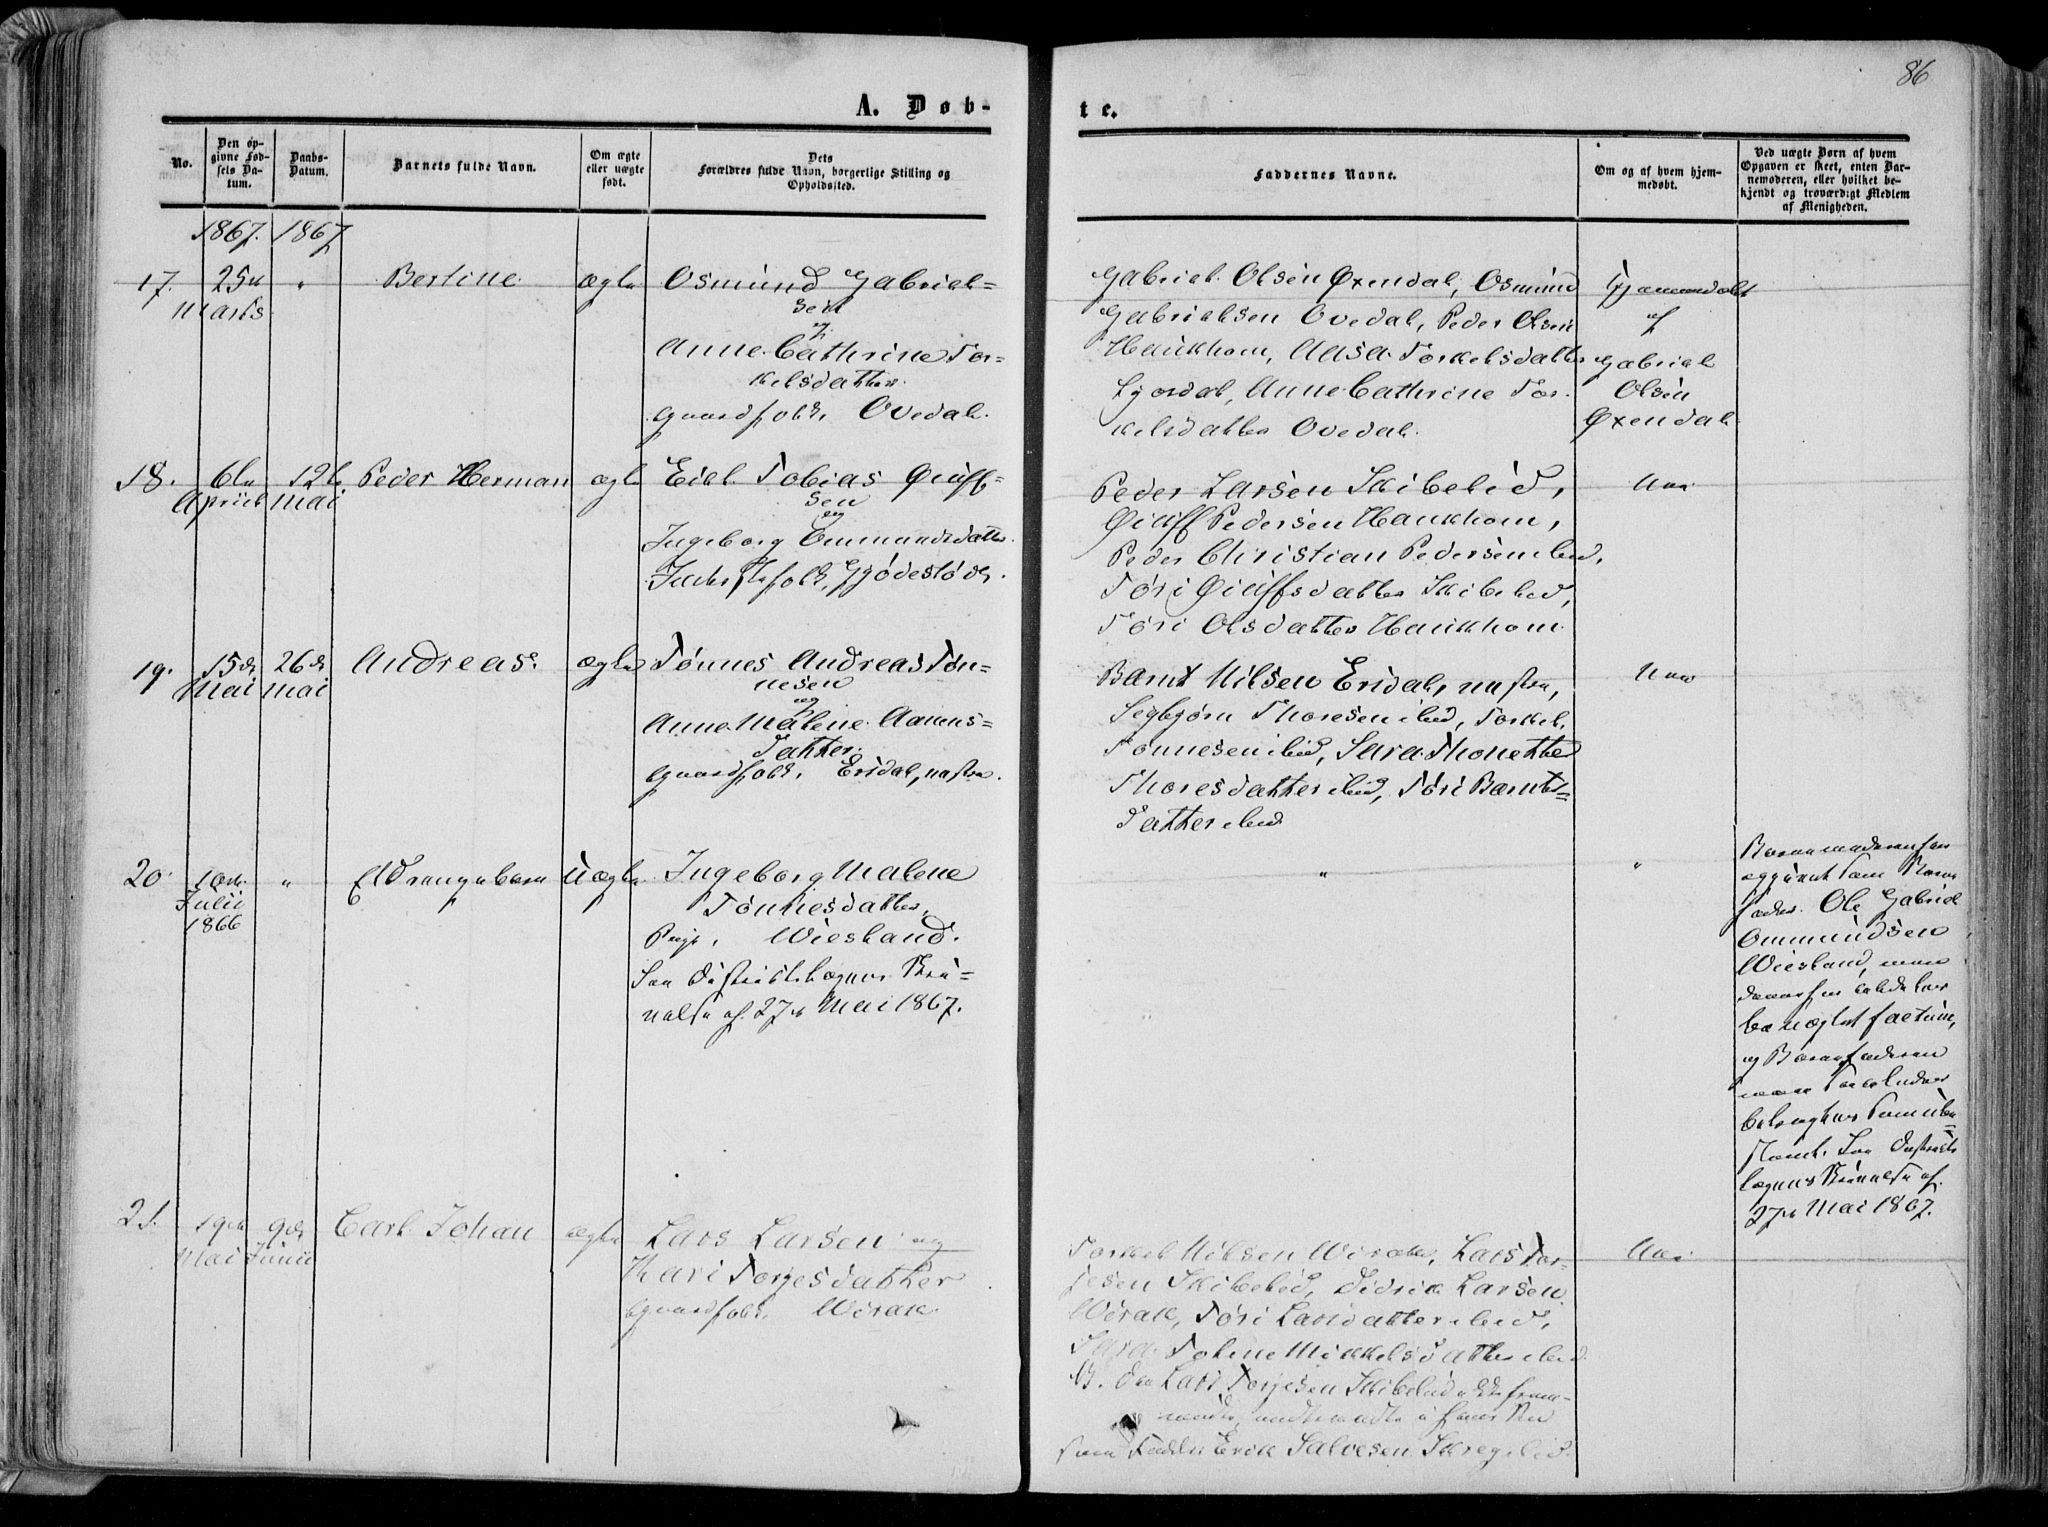 86
A. Døb-
te.
No.
Den op-
givne Fød-
sels Da-
tum.
Daabs-
Datum.
Barnets fulde Navn.
Om ægte
eller uægte
født.
Dets
Forældres fulde Navn, borgerlige Stilling og
Opholdssted.
Faddernes Navne.
Om og af hvem hjem-
medøbt.
Ved uægte Børn af hvem
Opgaven er skeet, enten Bar-
nemoderen, eller hvilket be-
kjendt og troværdigt Medlem
af Menigheden.
1867. 1867
17.
25de
Marts
"
Bertine
ægte
Osmund Gabriel=
sen
og
Anne Cathrine Tor=
kelsdatter
Gaardfolk, Ovedal.
Gabriel Olsen Øxendal, Osmund
Gabrielsen Ovedal, Peder Olsen
Haukhom, Aasa Torkelsdatter
Lyordal, Anne Cathrine Tor-
kelsdatter Ovedal.
Hjemmedøbt
af
Gabriel
Olsen
Øxendal
18.
6te
April
12te
Mai
Peder Herman
ægte
Eiel Tobias Øiuff=
sen
og
Ingeborg Ommundsdatter
Inderstfolk, Gjødestøl.
Peder Larsen Skibelid,
Øiuff Pedersen Haukhom,
Peder Christian Pedersen ibid,
Tøri Øiuffsdatter Skibelid,
Tøri Olsdatter Haukhom
Nei
19.
15de
Mai
26de
Mai
Andreas.
ægte
Tønnes Andreas Tøn=
nesen
og
Anne Malene Aanens=
datter
Gaardfolk, Eisdal, nestre.
Bernt Nilsen Eisdal, nestre,
Segbjørn Thoresen ibid, Torkel
Tønnesen ibid, Sara Thonette
Thoresdatter ibid, Tøri Berntes=
datter ibid
Nei
20.
10de
Julii
1866
"
Et Drengebarn
Uægte
Ingeborg Malene
Tønnesdatter,
Pige, Wiesland.
Saa Distriktslægens Skri=
velse af 27de Mai 1867.
"
"
Barnemoderen har
opgivet som Barne
fader Ole Gabriel
Ommundsen
Wiesland, men
denne har
benægtet factum,
og Barnefaderen
maa
ansees som ube=
kjendt. Saa Distrikts
lægens Skrivelse af
27de Mai 1867.
21.
19de
Mai
9de
Junii
Carl Johan
ægte
Lars Larsen og
Kari Torjesdatter
Gaardfolk, Wirak
Torkel Nilsen Wirak, Lars Tor=
jesen Skibelid, Didrik Larsen
Wirak, Tøri Larsdatter ibid,
Sara Toline Mikkelsdatter ibid
N. Da Lars Torjesen Skibelid ikke frem=
mødte, indtraadte i hans Sted
som Fadder Erik Salvesen Skregelid.
Nei